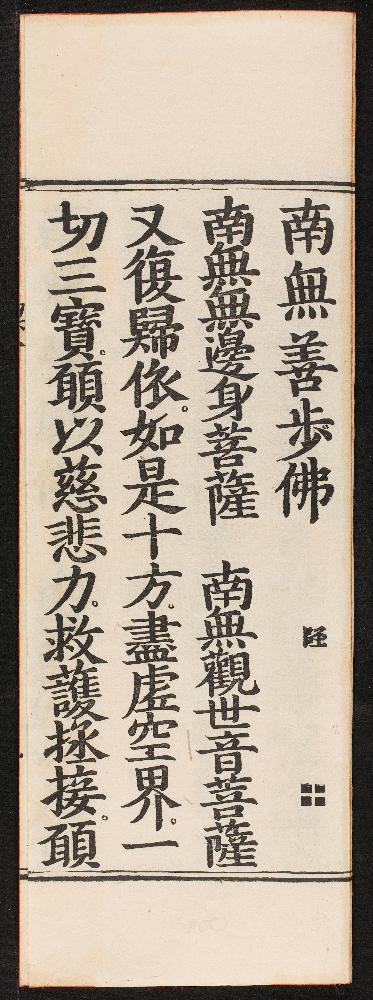 南無善步佛
南無無邊身菩薩　南無觀世音菩薩
又復歸依。如是十方。盡虛空界。一
切三寶。願以慈悲力。救護拯接。願